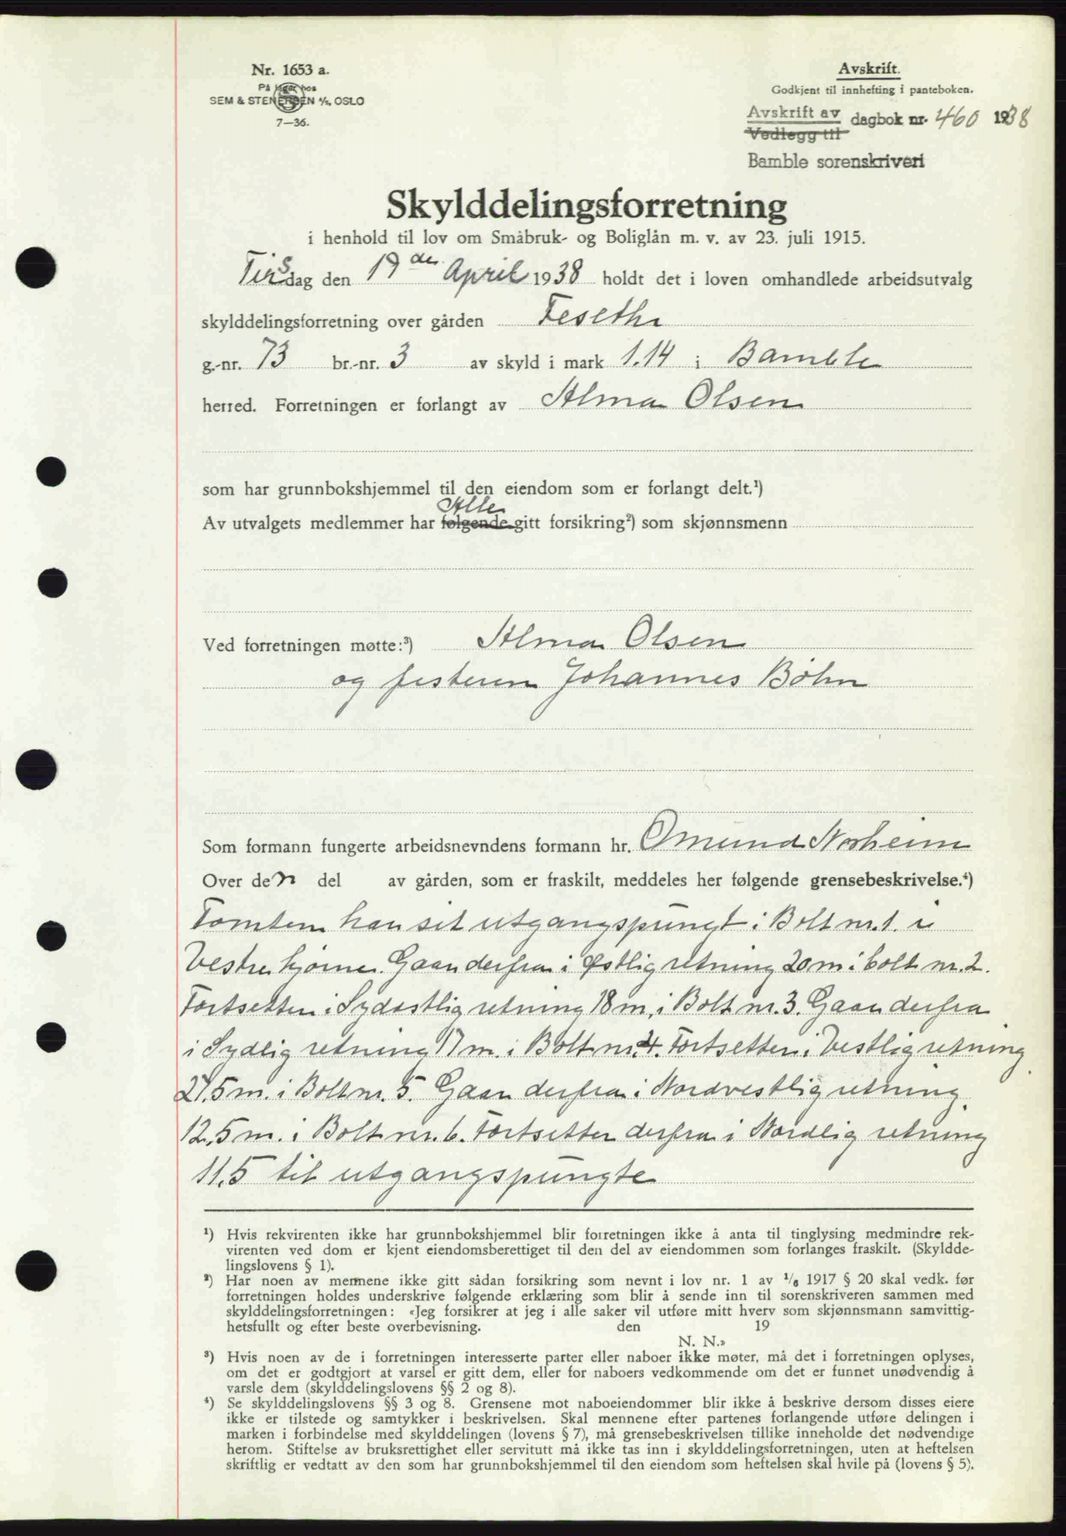 Nr. 1653 a.
På lager hos
SEM & STENERSEN A/S, OSLO
7—36.
Avskrift.
Godkjent til innhefting i panteboken.
Avskrift av
Vedlegg til dagbok nr. 460 1938
Bamble sorenskriveri
Skylddelingsforretning
i henhold til lov om Småbruk- og Boliglån m. v. av 23. juli 1915.
Tirsdag den 19 de April 1938 holdt det i loven omhandlede arbeidsutvalg
skylddelingsforretning over gården Feseth
g.-nr. 73 br.-nr. 3 av skyld i mark 1.14 i Bamble
herred. Forretningen er forlangt av Alma Olsen
som har grunnbokshjemmel til den eiendom som er forlangt delt.¹)
Alle
Av utvalgets medlemmer har følgende gitt forsikring²) som skjønnsmenn
Ved forretningen møtte:³) Alma Olsen
og festeren Johannes Böhn
Som formann fungerte arbeidsnevndens formann hr. Omund Norheim
Over den del av gården, som er fraskilt, meddeles her følgende grensebeskrivelse.⁴)
Tomten har sit utgangspungt i Bolt nr. 1. i
Vestre hjørne. Gaar derfra i Østlig retning 20 m i bolt nr. 2.
Fortsetter i Sydøstlig retning 18 m, i Bolt nr. 3. Gaar derfra
i Sydlig retning 17 m. i Bolt nr. 4. Fortsetter i Vestlig retning
27,5 m. i Bolt nr. 5. Gaar derfra i Nordvestlig retning
12,5 m. i Bolt nr. 6. Fortsetter derfra i Nordlig retning
11,5 til utgangspungte
¹) Hvis rekvirenten ikke har grunnbokshjemmel blir forretningen ikke å anta til tinglysing medmindre rek-
virenten ved dom er kjent eiendomsberettiget til den del av eiendommen som forlanges fraskilt. (Skyldde-
lingslovens § 1).
²) Har noen av mennene ikke gitt sådan forsikring som nevnt i lov nr. 1 av 1/6 1917 § 20 skal vedk. før
forretningen holdes underskrive følgende erklæring som blir å sende inn til sorenskriveren sammen med
skylddelingsforretningen: «Jeg forsikrer at jeg i alle saker vil utføre mitt hverv som skjønnsmann samvittig-
hetsfullt og efter beste overbevisning. den 19
N. N.»
³) Hvis noen av de i forretningen interesserte parter eller naboer ikke møter, må det i forretningen oplyses,
om det er godtgjort at varsel er gitt dem, eller for naboers vedkommende om det er funnet unødvendig å
varsle dem (skylddelingslovens §§ 2 og 8).
⁴) Se skylddelingslovens §§ 3 og 8. Grensene mot naboeiendommer blir ikke å beskrive dersom disses eiere
ikke er tilstede og samtykker i beskrivelsen. Skal mennene efter partenes forlangende utføre delingen i
marken i forbindelse med skylddelingen (lovens § 7), må grensebeskrivelsen tillike inneholde det nødvendige
herom. Stiftelse av bruksrettighet eller servitutt må ikke tas inn i skylddelingsforretningen, uten at heftelsen
skriftlig er vedtatt av den som har grunnbokshjemmel til den eiendom som heftelsen skal hvile på (lovens § 5).